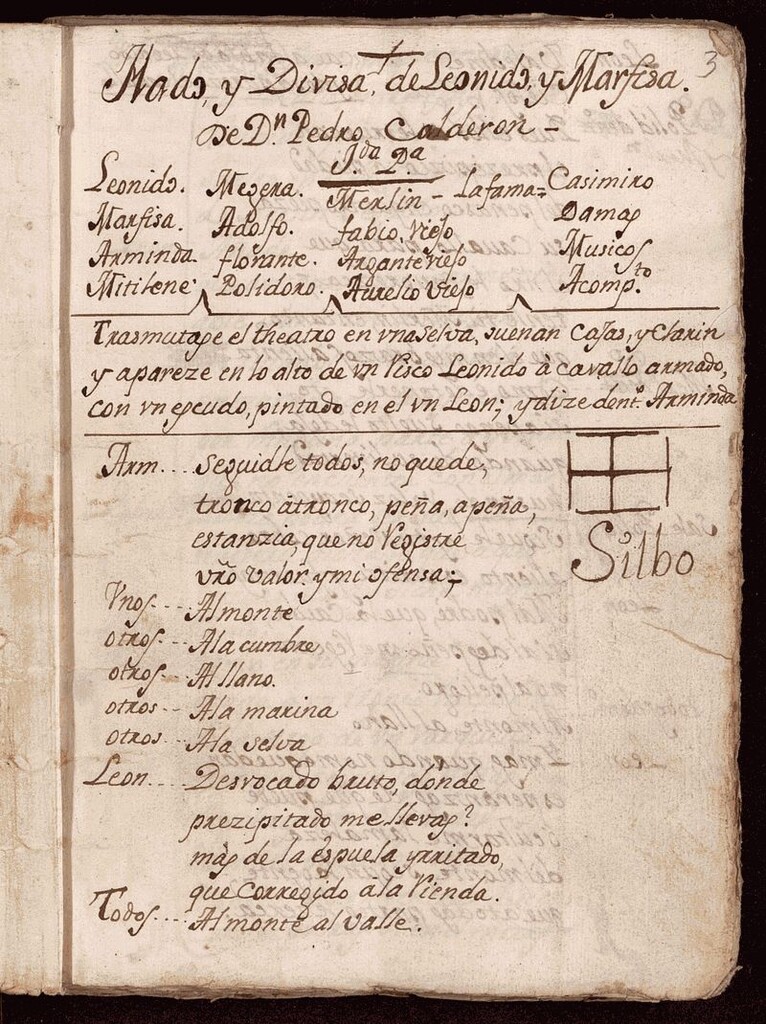 3
Hado, y Divisa, de Leonido, y Marfisa.
De Dn. Pedro Calderon -
Jda. Pa.
Leonido. Megera. Merlin - La fama = Casimiro
Marfisa. Adolfo. fabio, viejo Damas
Arminda florante. Argante viejo Musicos
Mitilene Polidoro. Aurelio viejo Acompto.
Trasmutase el theatro en vna selva, suenan Cajas, y Clarin
y apareze en lo alto de vn Risco Leonido à cavallo armado,
con vn escudo, pintado en el vn Leon; y dize dento. Arminda
Arm... seguidle todos, no quede,
tronco àtronco, peña, apeña,
estanzia, que no Registre
vro valor, y mi ofensa;
Silbo
Vnos... Al monte
otros... Ala cumbre
otros... Al llano.
otros... Ala marina
otros... Ala selva
Leon... Desvocado bruto, donde
prezipitado me llevas?
màs de la espuela yrritado,
que Corregido ala Rienda.
Todos... Al monte al valle.